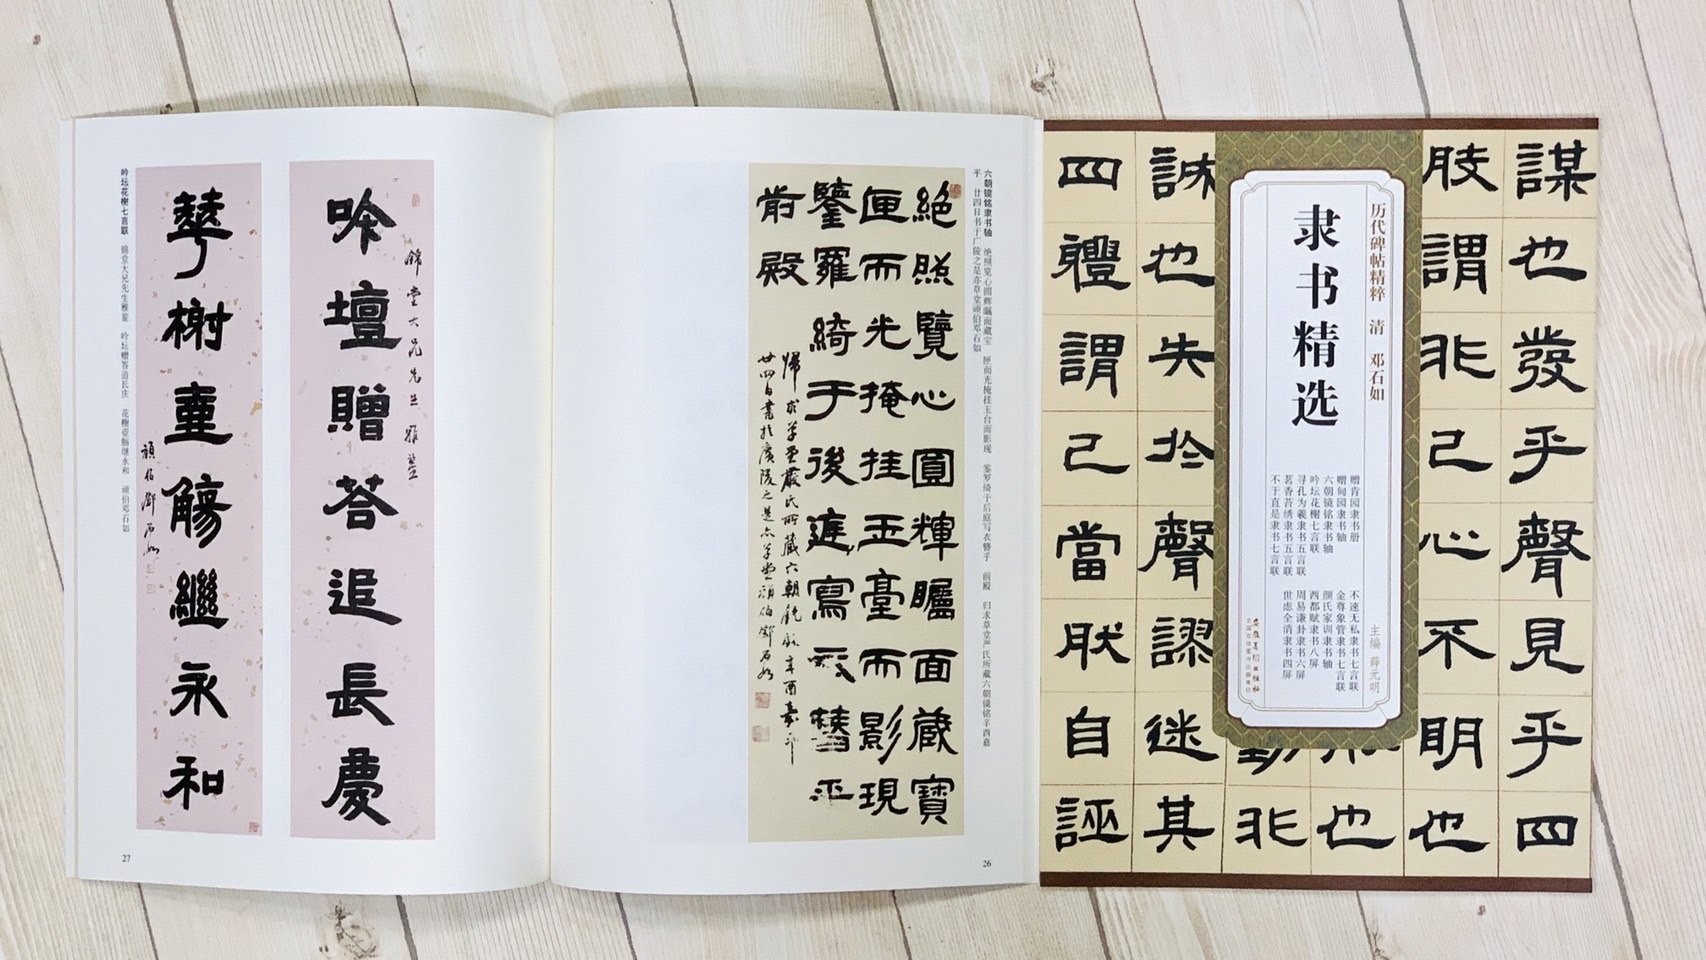 絕照覽心圓輝矚面藏寶
匣而光掩挂玉臺而影現
鑒羅綺于後庭寫衣簪乎
前殿
歸求草堂嚴氏所藏六朝鏡銘辛酉嘉平
廿四日書於廣陵之是亦草堂頑伯鄧石如
六朝镜铭隶书轴 绝照览心圆辉瞩面藏宝 匣而光掩挂玉台而影现 鉴罗绮于后庭写衣簪乎 前殿 归求草堂严氏所藏六朝镜铭辛酉嘉
平 廿四日书于广陵之是亦草堂顽伯邓石如
26
錦堂大兄先生雅鑒
吟壇贈荅追長慶
華榭壷觴繼永和
頑伯鄧石如
吟坛花榭七言联 锦堂大兄先生雅鉴 吟坛赠答追长庆 花榭壶觞继永和 顽伯邓石如
27
謀也發乎聲見乎四
肢謂非己心不明也
也
非
誠也失於聲謬迷其
四體謂己當肰自誣
历代碑帖精粹 清 邓石如
隶书精选
赠肯园隶书册
赠甸园隶书轴
六朝镜铭隶书轴
吟坛花榭七言联
寻孔为羲隶书五言联
茗香苔绣隶书五言联
不于直是隶书七言联
不速无私隶书七言联
金尊象管隶书七言联
颜氏家训隶书轴
西都赋隶书八屏
周易谦卦隶书六屏
世虑全消隶书四屏
主编 薛元明
安徽美术出版社